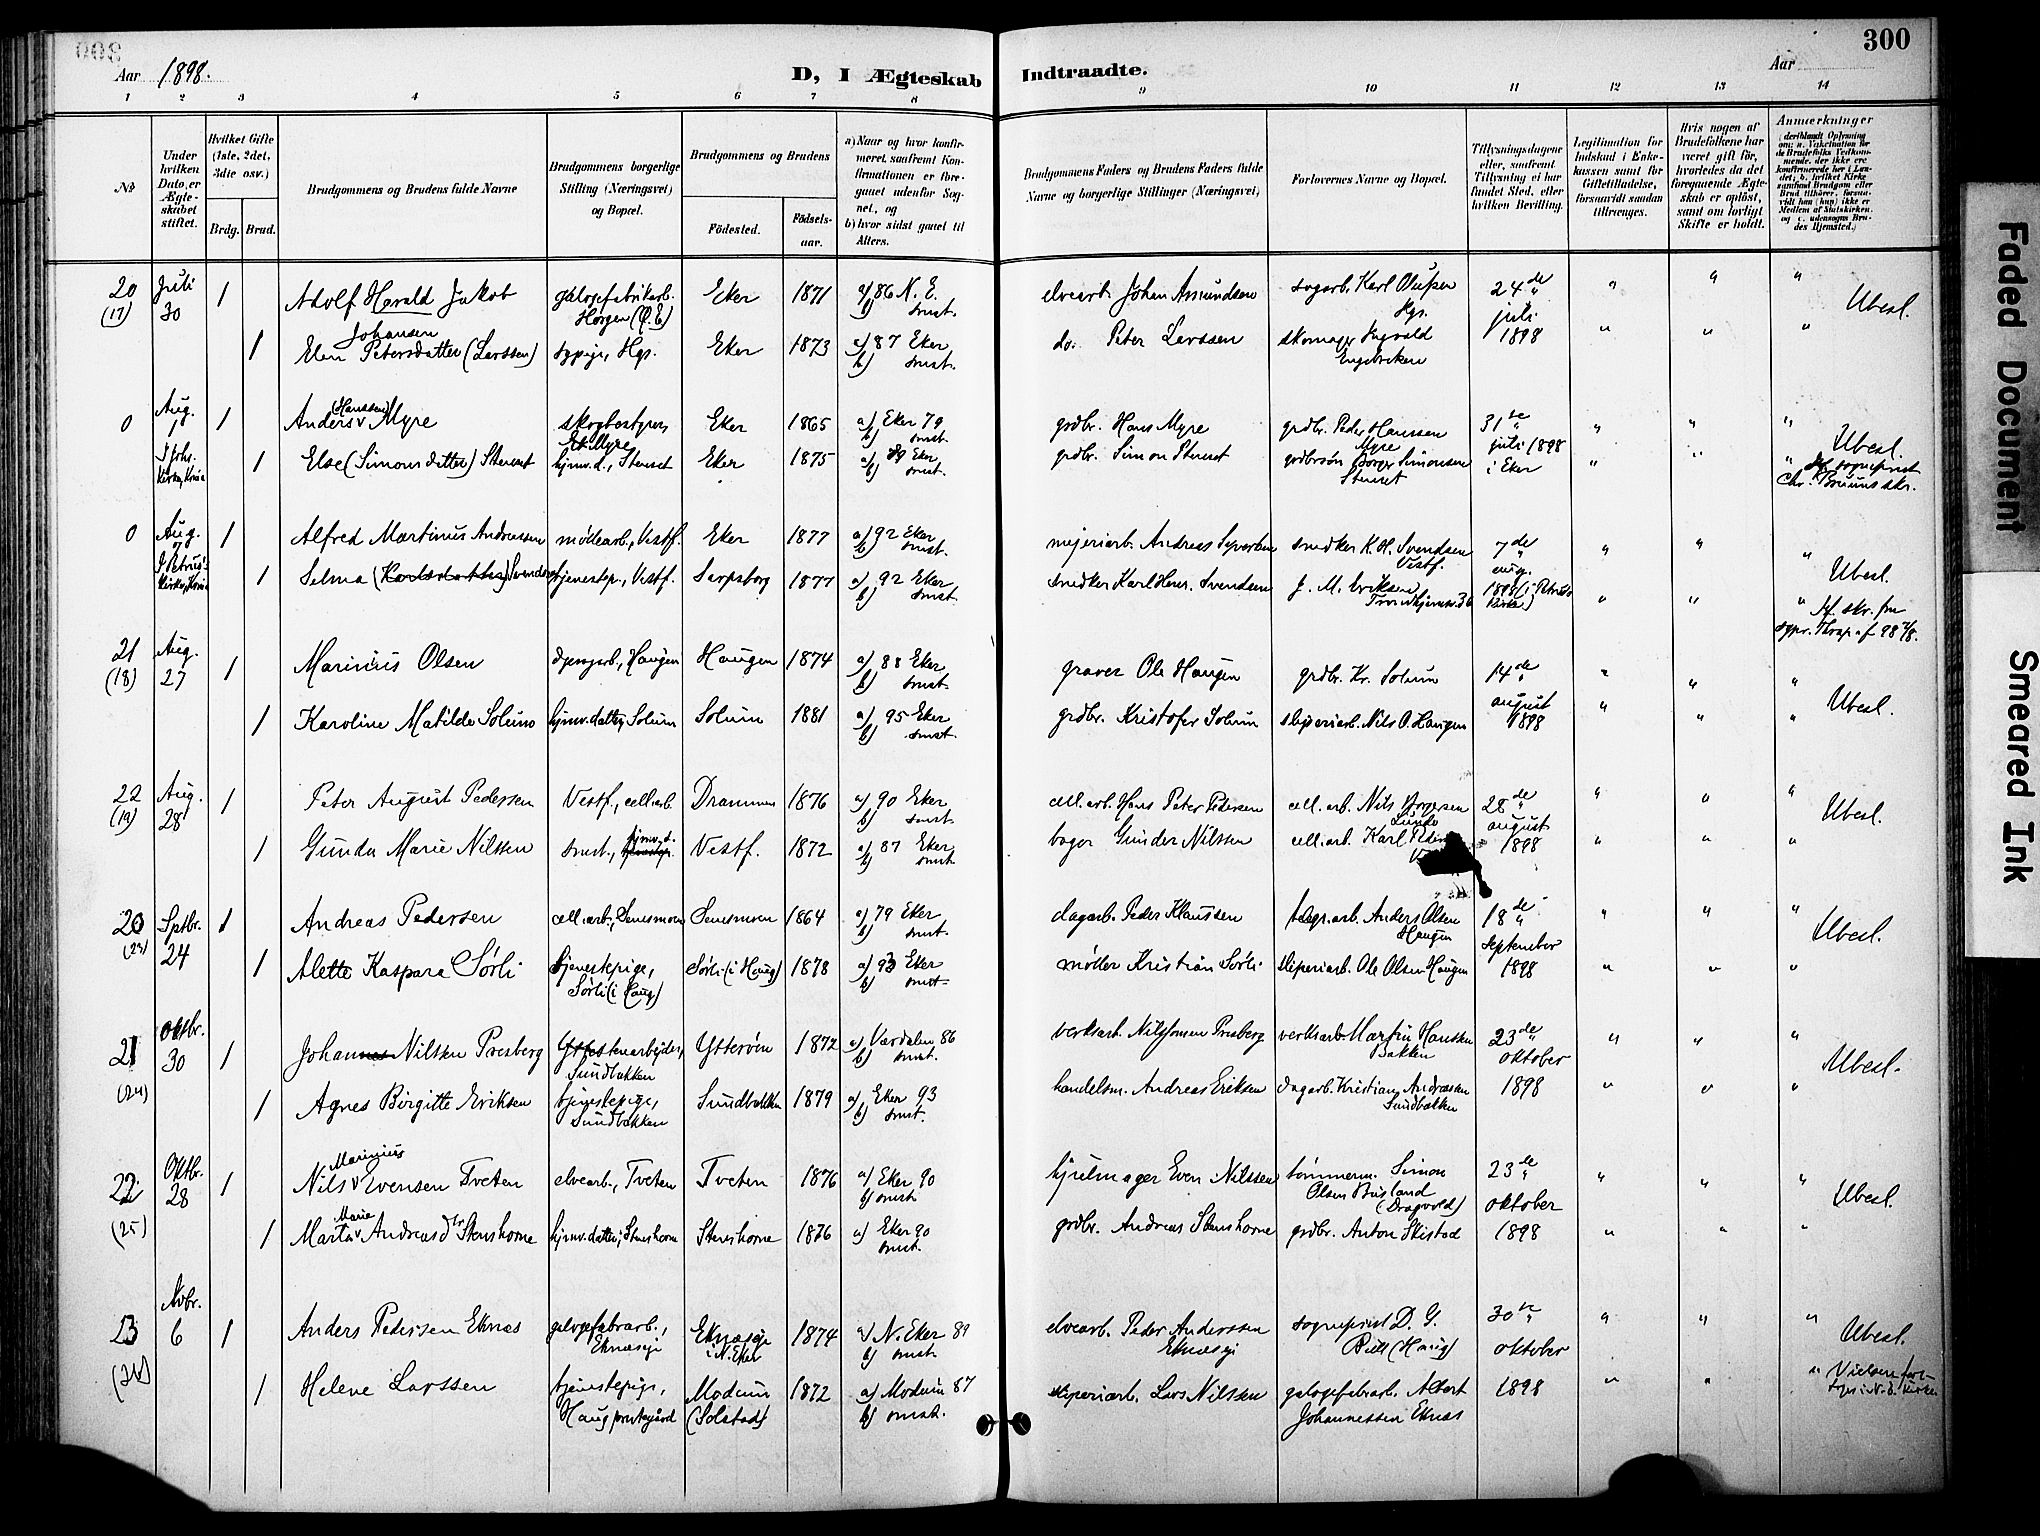 300
Aar 1898.
D, I Ægteskab Indtraadte.
Aar
1 2 3 4 5 6 7 8 9 10 11 12 13 14
No
Under hvilken Dato, er Ægteskabet stiftet.
Hvilket Gifte (1ste, 2det, 3die osv.)
Brdg. Brud.
Brudgommens og Brudens fulde Navne
Brudgommens borgerlige Stilling (Næringsvei) og Bopæl.
Brudgommens og Brudens
Födested. Födselsaar.
a) Naar og hvor konfirmeret, saafremt Konfirmationen er foregaaet udenfor Sognet, og
b) hvor sidst gaaet til Alters.
Brudgommens Faders og Brudens Faders fulde Navne og borgerlige Stillinger (Næringsvei)
Forlovernes Navne og Bopæl.
Tillysningsdagene eller, saafremt Tillysning ei har fundet Sted, efter hvilken Bevilling.
Legitimation for Indskud i Enkekassen samt for Giftetilladelse, forsaavidt saadan tiltrænges.
Hvis nogen af Brudefolkene har været gift för, hvorledes da det foregaaende Ægteskab er oplöst, samt om lovligt Skifte er holdt.
Anmærkninger
20 (17) Juli 30 1 Adolf Harald Jakob Johansen galogefabrikarb. Horgen (Ø.E) Eker 1871 a) 86 N. E. b) smst. elvearb. Johan Amundsen sagarb. Karl Olufsen Hgs. 24de juli 1898 " " " Ubesl.
1 Elen Petersdatter (Larssen) sypige, Hgs. Eker 1873 a) 87 Eker b) smst. do. Peter Larssen skomager Ingvald Engebretsen " " "
0 Aug. 1 Anders (Hanssen) Myre Myre Eker 1865 a) Eker 79 b) smst. grdbr. Hans Myre grdbr. Peder Hanssen Myre 31te juli 1898 i Eker " " " Ubesl.
1 Else (Simonsdatter) Stenset hjmv.d., Stenset Eker 1875 a) 89 Eker b) smst. grdbr. Simon Stenset grdbrsøn Borger Simonsen Stenset " " " sogneprest Chr. Bruuns skr.
0 Aug. 1 Alfred Martinus Andreassen møllearb., Vestf. Eker 1877 a) 92 Eker b) smst. mejeriarb. Andreas snedker K. H. Svendsen Vestf. 7de aug. 1898 (i Petrus Kirke) " " " Ubesl.
I Petrus Kirke 1 Selma (Karlsdatter) Svendsen tjenestep., Vestf. Sarpsborg 1877 a) 92 Eker b) smst. snedker Karl Svendsen J. M. Eriksen " " "
21 (18) Aug. 27 1 Marinius Olsen Haugen Haugen 1874 a) 88 Eker b) smst. graver Ole Haugen grdbr. Kr. Solum 14de august 1898 " " " Ubesl.
1 Karoline Matilde Solum hjmv. datter, Solum Solum 1881 a) 95 Eker b) smst. grdbr. Kristofer Solum sliperiarb. Nils O. Haugen " " "
22 (19) Aug. 28 1 Peter August Pedersen Vestf., cell.arb. Drammen 1876 a) 90 Eker b) smst. cell. arb. Hans Peter Pedersen cell. arb. Nils Borgersen Lunde 28de august 1898 " " " Ubesl.
1 Gunda Marie Nilssen smst., hjmv.d. Vestf. 1872 a) 87 Eker b) smst. bager Gunder Nilssen cell. arb. Karl " " "
20 (23) Sptbr. 24 1 Andreas Pedersen cell. arb., Semsmoen Semsmoen 1864 a) 79 Eker b) smst. dagarb. Peder Klaussen arb. Anders Olsen Haugen 18de september 1898 " " " Ubesl.
1 Alette Kaspara Sørli tjenestepige, Sørli (i Haug) Sørli (i Haug) 1878 a) 93 Eker b) smst. møller Kristian Sørli sliperiarb. Ole Olsen Haugen " " "
21 (24) Oktbr. 30 1 Johannes Nilssen Presberg stenarbejder, Sundbakken Ytterøen 1872 a) Værdalen 86 b) smst. verksarb. Nils Jonsen Presberg verksarb. Martin Hanssen Bakken 23de oktober 1898 " " " Ubesl.
1 Agnes Birgitte Eriksen tjenestepige, Sundbakken Sundbakken 1879 a) Eker 93 b) smst. handelsm. Andreas Eriksen dagarb. Kristian Andreassen Sundbakken " " "
22 (25) Oktbr. 28 1 Nils Marinius Evensen Tveten elvearb., Tveten Tveten 1876 a) Eker 90 b) smst. hjulmager Even Nilssen tømmerm. Simon Olsen Busland 23de oktober 1898 " " " Ubesl.
1 Marta Marie Andreasdtr Stenshorne hjmv. datter, Stenshorne Stenshorne 1876 a) Eker 90 smst. grdbr. Andreas Stenshorne grdbr. Anton Skistad " " "
23 (26) Novbr. 6 1 Anders Pedersen Eknæs galogefabrarb., Eknæseje Eknæseje i N. Eker 1874 a) N. Eker 89 b) smst. elvearb. Peder Anderssen Eknæseje sogneprest D. G. (Haug) 30te oktober 1898 " " " Ubesl.
1 Helene Larssen tjenestepige, Haug prestegård Modum (Solstad) 1872 a) Modum 87 b) smst. sliperiarb. Lars Nilssen galogefabrarb. Albert Johannessen Eknæs " " "
Faded Document
Smeared Ink